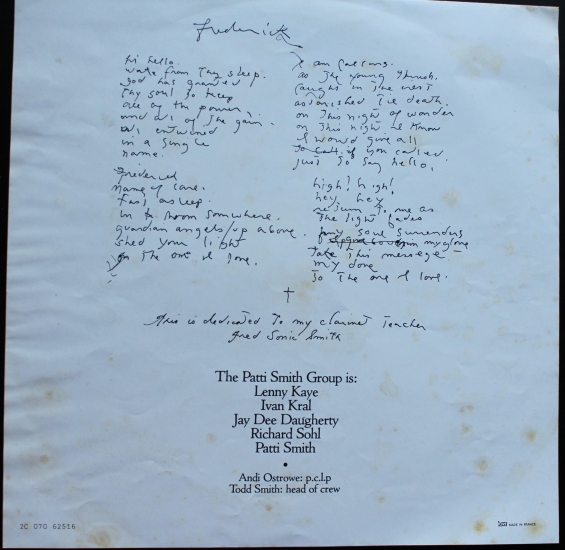 Frederick
hi hello.
wake from thy sleep.
god has granted
thy soul to keep
all of the power
and all of the gain.
all entwined
in a single
name.
Frederick
name of care.
fast asleep.
in a room somwhere.
guardian angels/up above.
shed your light
on the one I love.
I am calling.
as the young thrush.
caught in the nest
astonished til death.
on this night of wonder
on this night I know
I would give all
if you called
just to say hello.
high! high!
hey. hey
return to me as
the light fades
my soul surrenders
my glove
Take this message
my dove
to the one I love.
†
This is dedicated to my clarinet teacher
Fred Sonic Smith
The Patti Smith Group is:
Lenny Kaye
Ivan Kral
Jay Dee Daugherty
Richard Sohl
Patti Smith
•
Andi Ostrowe: p.c.l.p
Todd Smith: head of crew
2C 070 62516
MADE IN FRANCE